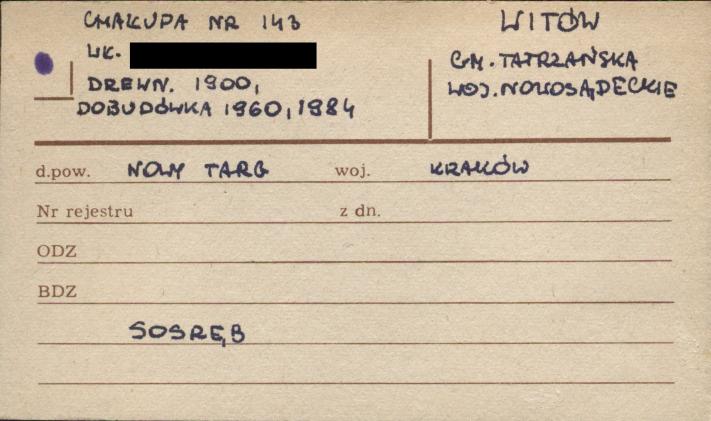 CHAŁUPA NR 143
WITÓW
WŁ.
GM. TATRZAŃSKA
DREWN. 1900,
WOJ. NOWOSĄDECKIE
DOBUDÓWKA 1960, 1984
d.pow. NOWY TARG woj. KRAKÓW
Nr rejestru z dn.
ODZ
BDZ
SOSRĘB